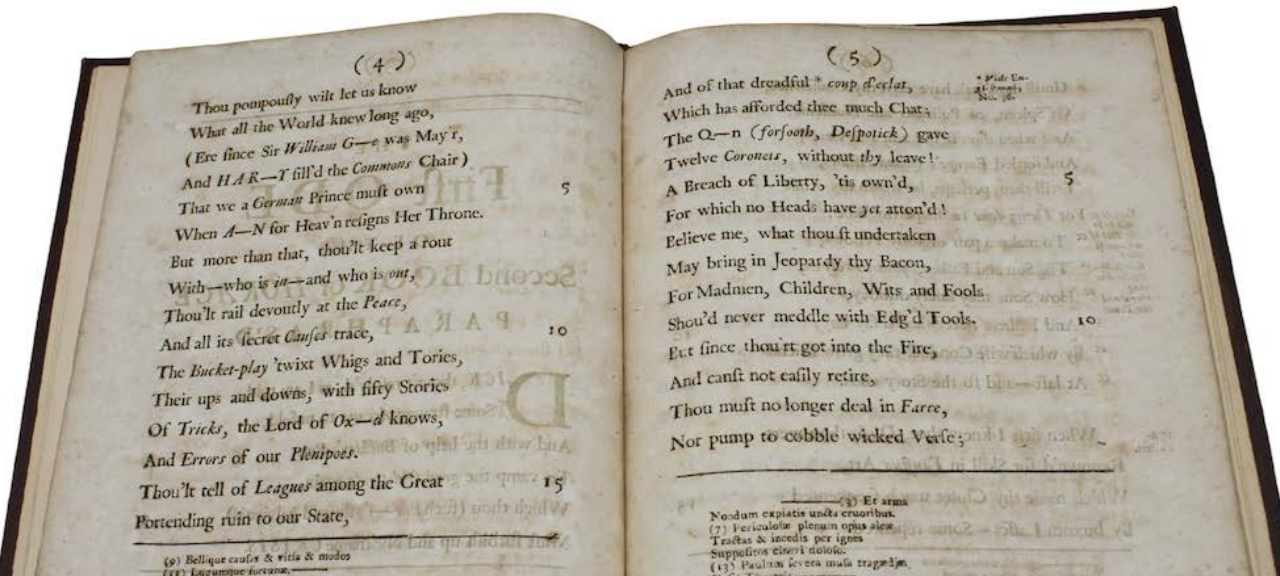 (4)
Thou pompouſly wilt let us know
What all the World knew long ago,
(Ere ſince Sir William G—e was May'r,
And HAR—Y fill'd the Commons Chair)
That we a German Prince muſt own 5
When A—N for Heav'n reſigns Her Throne.
But more than that, thou'lt keep a rout
With—who is in—and who is out,
Thou'lt rail devoutly at the Peace,
And all its ſecret Cauſes trace, 10
The Bucket-play 'twixt Whigs and Tories,
Their ups and downs, with fifty Stories
Of Tricks, the Lord of Ox—d knows,
And Errors of our Plenipoes.
Thou'lt tell of Leagues among the Great 15
Portending ruin to our State,
(9) Bellique cauſas & vitia & modos
(11) Ludumque fortunæ,
(5)
And of that dreadful * coup d'eclat,
* Vide En-
No. 36.
Which has afforded thee much Chat;
The Q—n (forſooth, Deſpotick) gave
Twelve Coronets, without thy leave!
A Breach of Liberty, 'tis own'd, 5
For which no Heads have yet atton'd!
Believe me, what thou ſt undertaken
May bring in Jeopardy thy Bacon,
For Madmen, Children, Wits and Fools
Shou'd never meddle with Edg'd Tools. 10
But ſince thou'rt got into the Fire,
And canſt not eaſily retire,
Thou muſt no longer deal in Farce,
Nor pump to cobble wicked Verſe;
(3) Et arma
Nondum expiatis uncta cruoribus.
(7) Periculoſæ plenum opus aleæ
Tractas & incedis per ignes
Suppoſitos cineri doloſo.
(13) Paulum ſevera muſa tragœdiæ